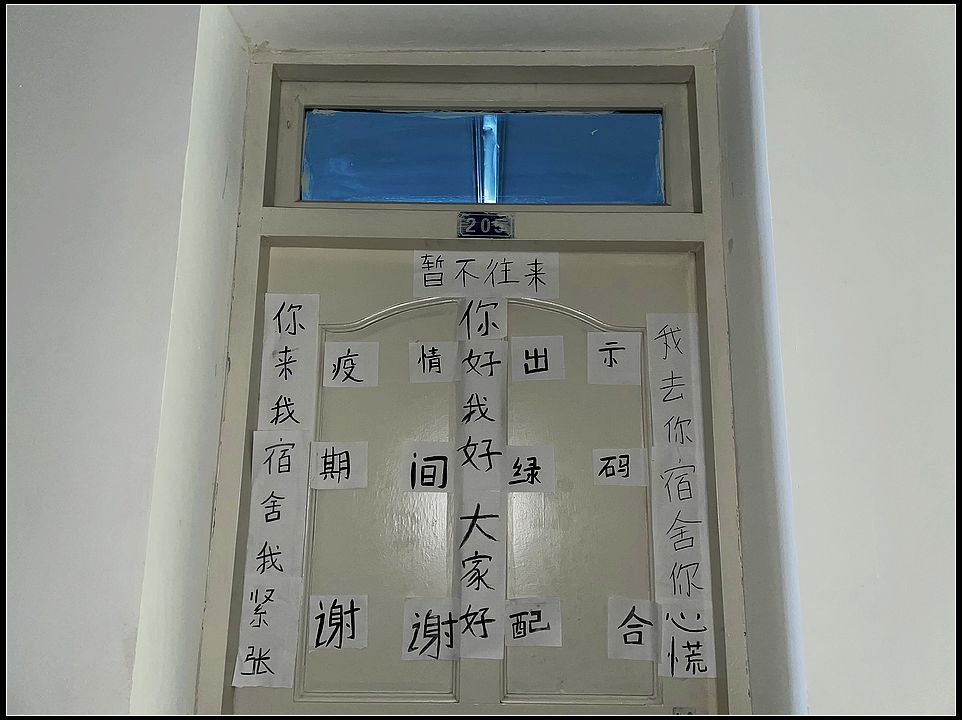 205
暂不往来
你来我宿舍我紧张
你好我好大家好
我去你宿舍你心慌
疫情出示
期间绿码
谢谢配合